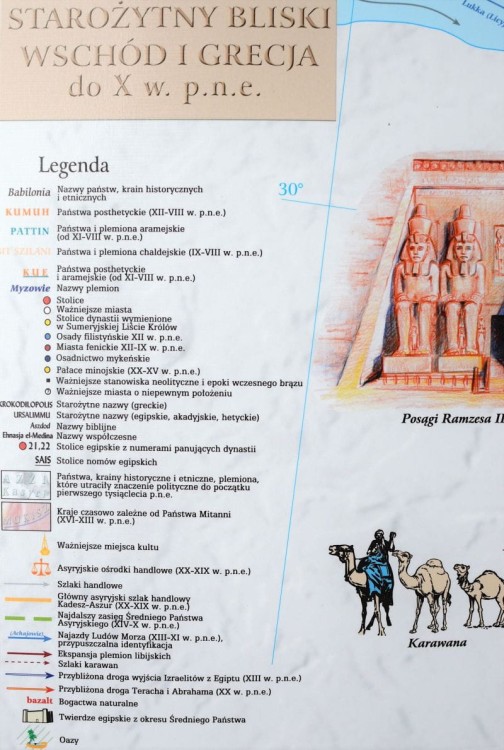 STAROŻYTNY BLISKI
WSCHÓD I GRECJA
do X w. p.n.e.
Lukka (Licy
Legenda
30°
Babilonia Nazwy państw, krain historycznych
i etnicznych
KUMUH Państwa posthetyckie (XII-VIII w. p.n.e.)
PATTIN Państwa i plemiona aramejskie
(od XI-VIII w. p.n.e.)
Państwa i plemiona chaldejskie (IX-VIII w. p.n.e.)
KUE Państwa posthetyckie
i aramejskie (od XI-VIII w. p.n.e.)
Myzowie Nazwy plemion
Stolice
Ważniejsze miasta
Stolice dynastii wymienione
w Sumeryjskiej Liście Królów
Osady filistyńskie XII w. p.n.e.
Miasta fenickie XII-IX w. p.n.e.
Osadnictwo mykeńskie
Pałace minojskie (XX-XV w. p.n.e.)
Ważniejsze stanowiska neolityczne i epoki wczesnego brązu
Ważniejsze miasta o niepewnym położeniu
KROKODILOPOLIS Starożytne nazwy (greckie)
URSALIMMU Starożytne nazwy (egipskie, akadyjskie, hetyckie)
Aszdod Nazwy biblijne
Ehnasja el-Medina Nazwy współczesne
21,22 Stolice egipskie z numerami panujących dynastii
SAIS Stolice nomów egipskich
Państwa, krainy historyczne i etniczne, plemiona,
które utraciły znaczenie polityczne do początku
pierwszego tysiąclecia p.n.e.
Kraje czasowo zależne od Państwa Mitanni
(XVI-XIII w. p.n.e.)
Ważniejsze miejsca kultu
Asyryjskie ośrodki handlowe (XX-XIX w. p.n.e.)
Szlaki handlowe
Główny asyryjski szlak handlowy
Kadesz-Aszur (XX-XIX w. p.n.e.)
Najdalszy zasięg Średniego Państwa
Asyryjskiego (XIV-X w. p.n.e.)
Achajowie Najazdy Ludów Morza (XIII-XI w. p.n.e.),
przypuszczalna identyfikacja
Ekspansja plemion libijskich
Szlaki karawan
Przybliżona droga wyjścia Izraelitów z Egiptu (XIII w. p.n.e.)
Przybliżona droga Teracha i Abrahama (XX w. p.n.e.)
bazalt Bogactwa naturalne
Twierdze egipskie z okresu Średniego Państwa
Oazy
Posągi Ramzesa II
Karawana